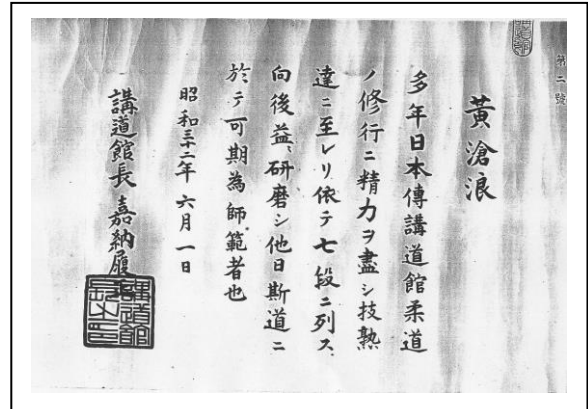 第二號
黃滄浪
多年日本傳講道館柔道
ノ修行ニ精力ヲ盡シ技熟
達ニ至レリ依テ七段ニ列ス
向後益〻研磨シ他日斯道ニ
於テ可期為師範者也
昭和三十二年六月一日
講道館長嘉納履
講道館長之印